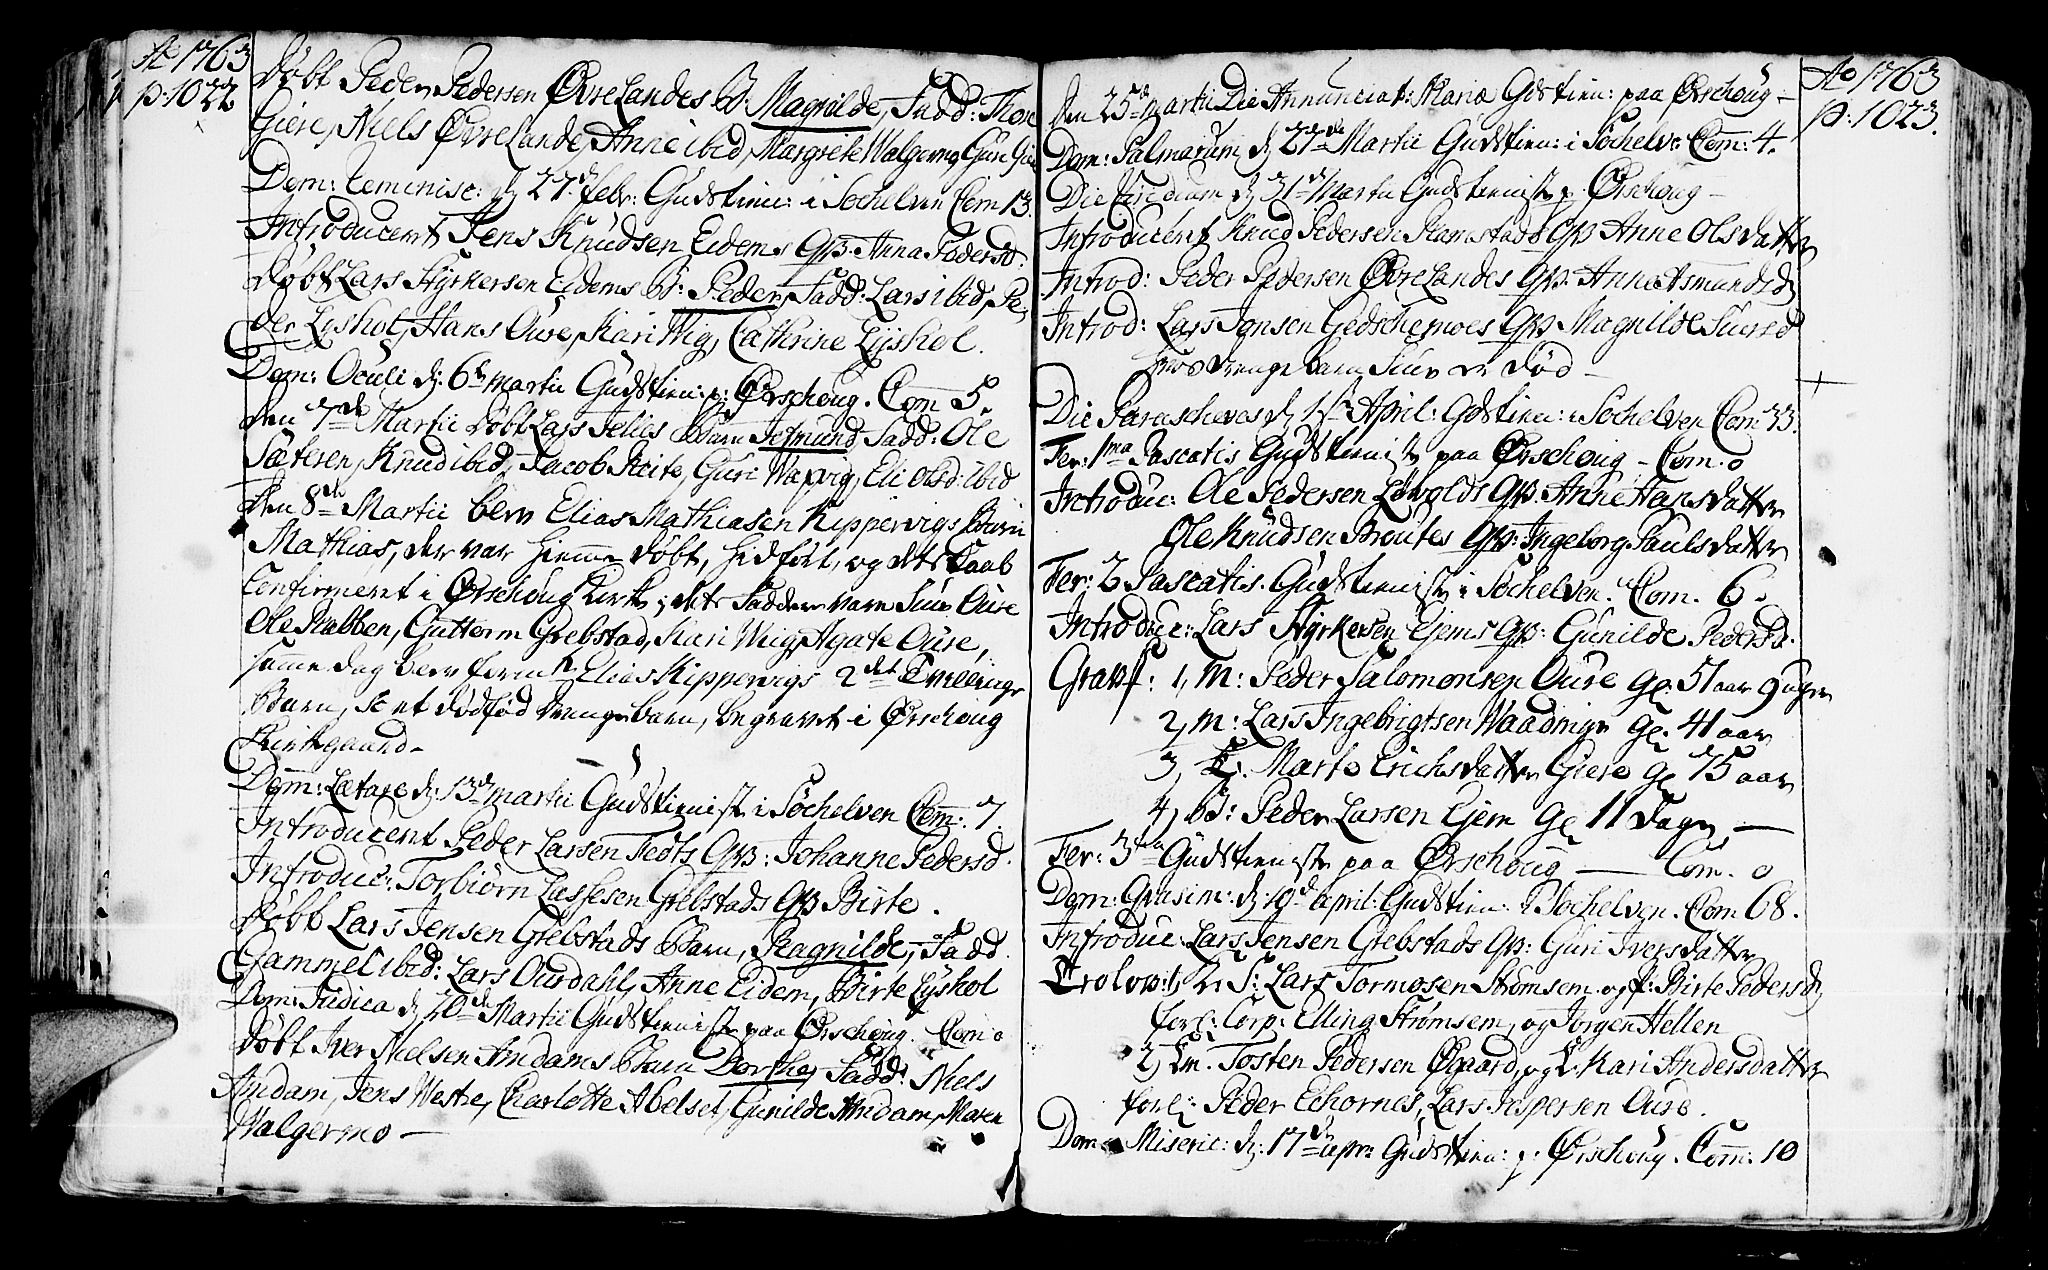 Ao 1763
p. 1022
Døbt Peder Pedersen Øvrelandes B: Magnilde, Fadd: Thore
Giere, Niels Øvrelande, Anne ibid, Margrete Walgermo, Guri Giere
Dom: Reminisc: d: 27. febr: Gudstien: i Søchelven Com 13.
Introduceret Jens Knudsen Eidems Qv: Anna Pedersd:
Døbt Lars Styrkersen Eidems B: Peder, Fadd: Lars ibid, Pe-
der Lyshol, Hans Oure, Kari Wig, Cathrine Lyshol.
Dom: Oculi d: 6te martii Gudstien: p: Ørschoug. Com 5.
den 7de Martii døbt Lars Barn Jetmund Fadd: Ole
Sæteren, Knud ibid, Jacob Reite, Guri, Eli Olsd: ibid
den 8de Martii blev Elias Mathiasen Kippervigs Barn
Mathias, der var hiemme døbt, hidført, og dets Daab
Confirmeret i Ørschoug Kirke; dets Faddere vare Siur Oure
Ole Rabben, Guttorm Grebstad, Kari Wiig, Agate Oure,
samme dag blev Elias Kippervigs 2det Tvillinge
Barn, et dødfød drengebarn, begravet i Ørschoug
Kirkegaard-
Dom: Lætare d: 13de martii Gudstienist i Søchelven Com: 7.
Introduceret Peder Larsen Tedts Qv: Johanne Pedersd.
Introduc: Torbiørn Lassesen Grebstads Qv Birte.
Døbt Lars Jensen Grebstads Barn, Ragnilde, Fadd.
Gammel ibid: Lars Ourdahl, Anne Eidem, Birte Lyshol
Dom: Judica d 20de Martii Gudstieniste paa Ørschoug. Com o
Døbt Iver Nielsen Amdams Barn Dorthe, Fadd: Niels
Amdam, Jens Westre, Charlotte Abelset, Gunilde Amdam, Maren
Walgermo -
Ao 1763
p: 1023.
den 25de martii Die Annunciat: Mariæ Gdstien: paa Ørschoug -
Dom: Palmarum d 27de Martii Gudstien: i Søchelv: Com: 4.
Die Viridium d 31de Martii Gudstieniste p. Ørschoug -
Introduceret Knud Pedersen Ramstads Qv Anne Olsdatter
Introd: Peder Pedersen Øvrelandes Qv: Anne Asmundsd
Introd: Lars Jensen Gedschemoes Qv Magnilde Siursd
hvos drengebarn Siur er død -
Die Parascheves d 1ste April: Gdstien: i Søchelven Com: 33.
Fer: 1ma Pascatis Gudstieniste paa Ørschoug - Com. o
Introduc: Ole Pedersen Løvolds Qv: Anne Hansdatter
Ole Knudsen Broutes Qv: Ingeborg Paulsdatter
Fer: 2 Pascatis. Gudstieniste i Søchelven. Com. 6.
Introduc: Lars Styrkersen Ejems Qv: Gunilde Pedersd.
Gravf: 1, M: Peder Salomonsen Oure gl. 51 aar 9 uger
2, M: Lars Ingebrigtsen Waadmyr gl. 41 aar
3, Marte Erichsdatter Giere gl 75 aar
4, B: Peder Larsen Ejem gl 11 dage -
Fer: 3tia Gudstieniste paa Ørschoug - Com. o
Dom: Qvasim: d: 10de april: Gudstien: i Søchelven. Com 68.
Introduc: Lars Jensen Grebstads Qv: Guri Iversdatter
Trolov: 1, S: Lars Tormosen Strømsem og P: Birte Pedersd
forl: Corp: Elling Strømsem, og Jørgen Hellen
2, Em. Tosten Pedersen Øgaard, og E: Kari Andersdatter
forl: Peder Echornes, Lars Jespersen Oure.
Dom: Miseric: d: 17de apr: Gudstien: p: Ørschoug. Com: 10